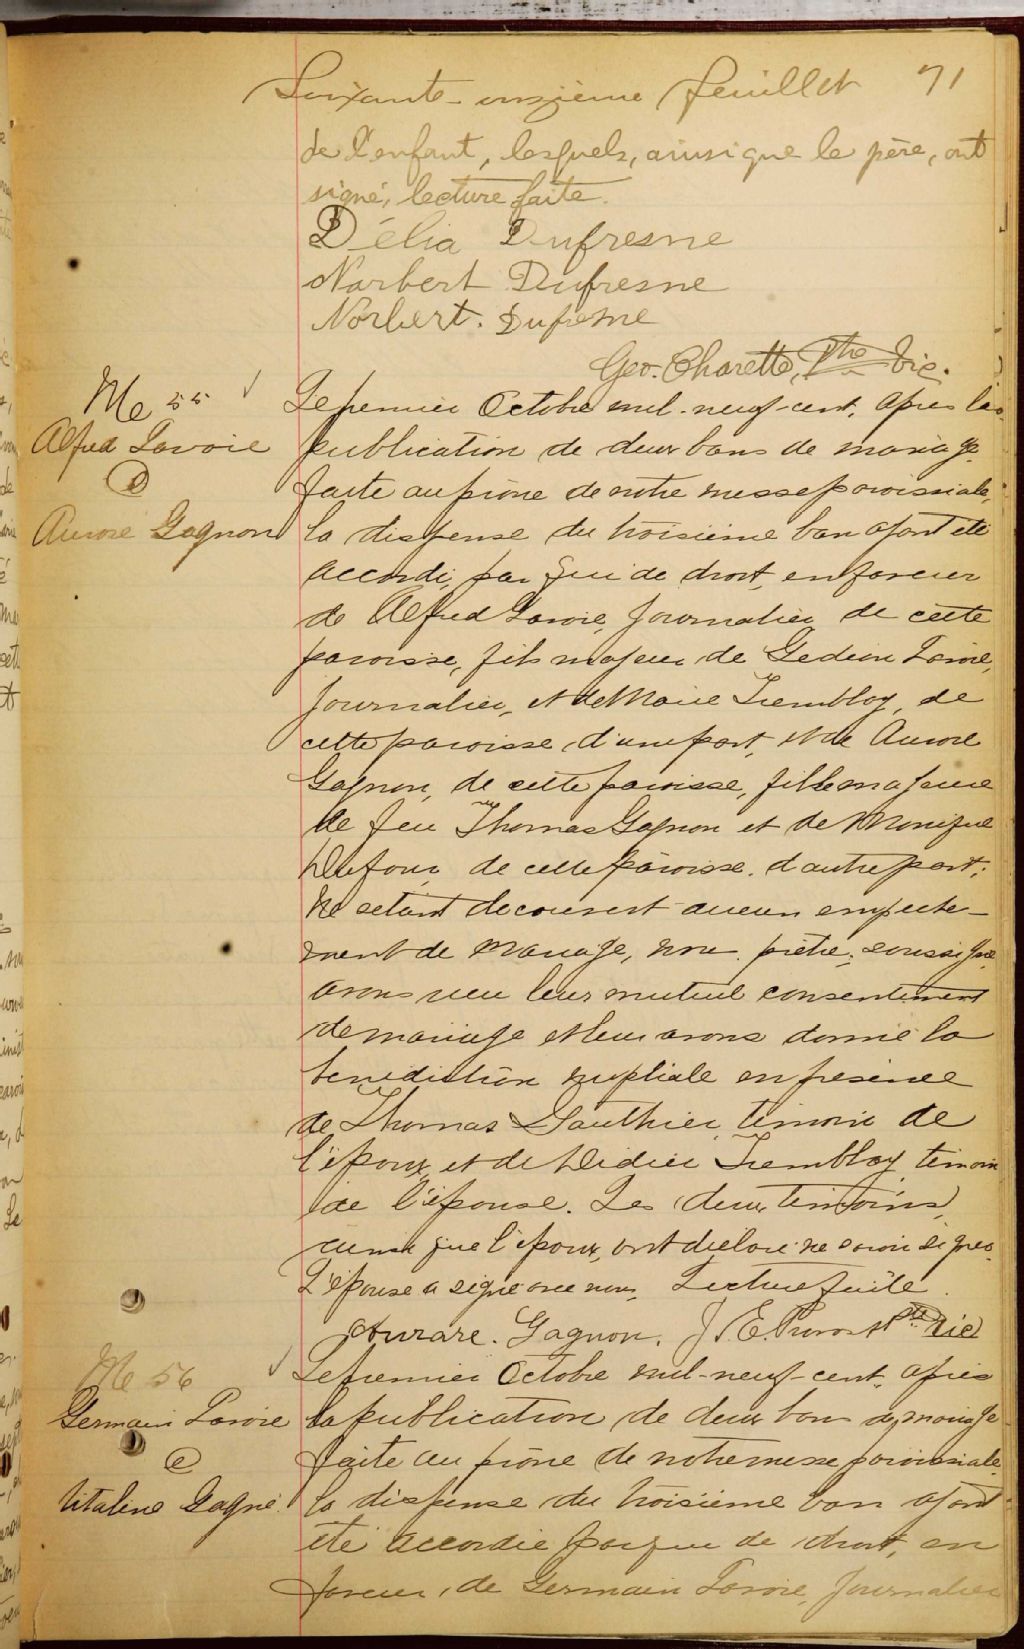 Soixante-onzième feuillet 71
de l'enfant, lesquels, ainsi que le père, ont
signé, lecture faite.
Délia Dufresne
Norbert Dufresne
Norbert. Dufresne
Geo. Charette, Ptre Vic.
Me 55
Alfred Lavoie
&
Aurore Gagnon
Le premier Octobre mil-neuf-cent, apres la
publication de deux bans de mariage
faite au prône de notre messe paroissiale,
la dispense du troisième ban ayant été
accordé, par qui de droit, en faveur
de Alfred Lavoie, journalier de cette
paroisse, fils majeur de Gedeon Lavoie,
journalier, et de Marie Tremblay, de
cette paroisse, d'une part, et de Aurore
Gagnon, de cette paroisse, fille majeure
de feu Thomas Gagnon et de Monique
Dufour, de cette paroisse. d'autre part;
Ne setant decouvert aucun empeche-
ment de mariage, nous prêtre, soussigné,
avons reçu leur mutuel consentement
de mariage et leur avons donné la
benediction nuptiale en présence
de Thomas Gauthier, temoin de
l'époux, et de Didier Tremblay, temoin
de l'épouse. Les deux temoins,
ainsi que l'époux, ont déclaré ne savoir signer.
L'épouse a signé avec nous, Lecture faite.
Aurare. Gagnon. J. E. Provost Ptre Vic
Me 56
Germain Lavoie
&
Vitaline Gagné
Le premier Octobre mil-neuf-cent, apres
la publication de deux bans de mariage
faite au prône de notre messe paroissiale,
la dispense du troisième ban ayant
été accordée par qui de droit, en
faveur, de Germain Lavoie, journalier